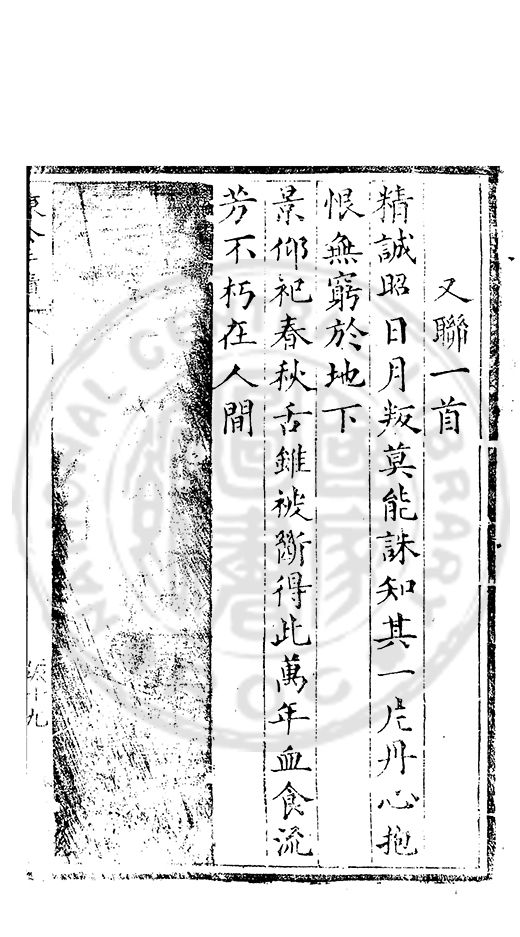 又聯一首
精誠昭日月叛莫能誅知其一片丹心抱
恨無窮於地下
景仰祀春秋舌雖被斷得此萬年血食流
芳不朽在人間
NATIONAL CENTRAL LIBRARY